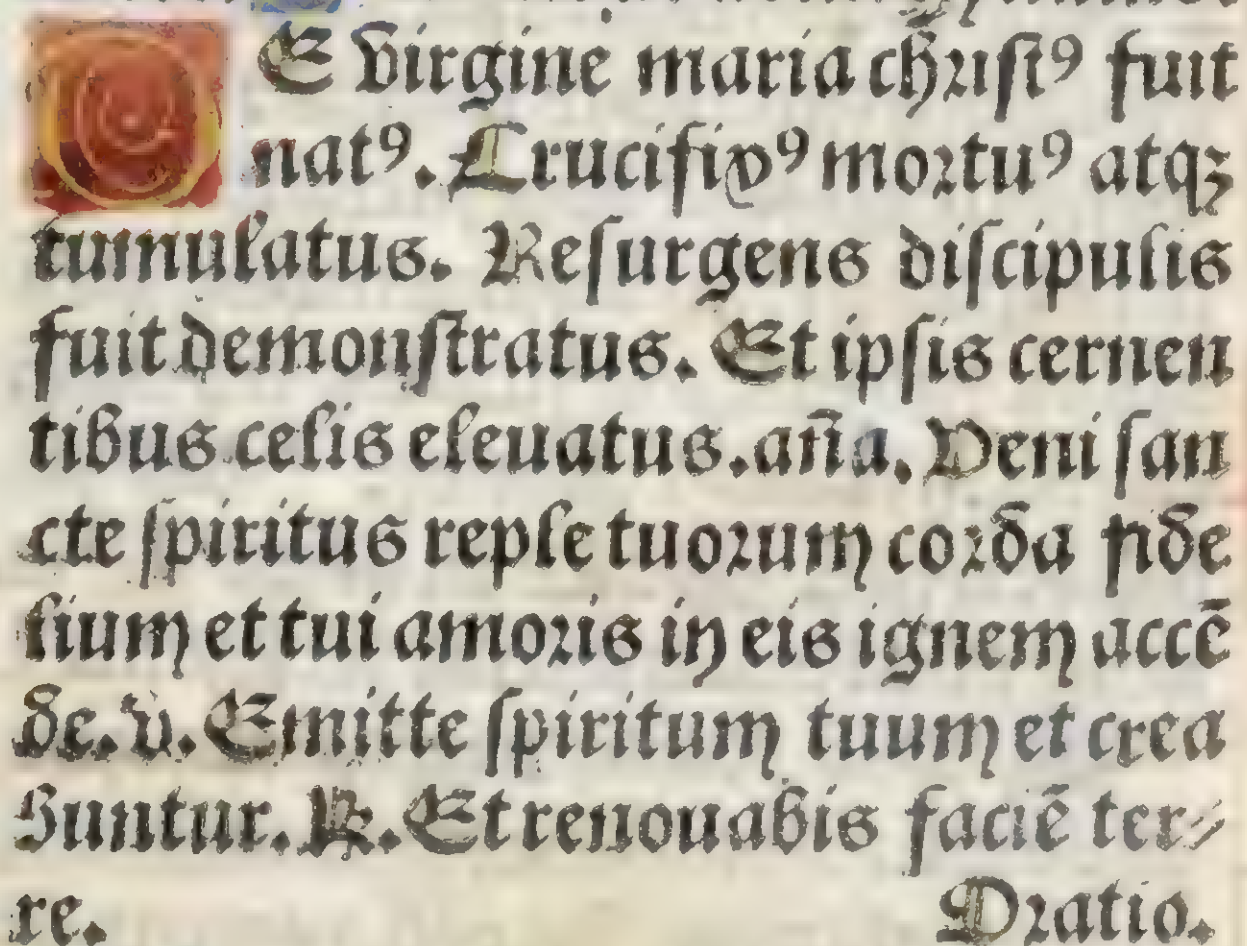 DE virgine maria chr̄istꝰ fuit
natꝰ. Crucifixꝰ mortuꝰ atqꝫ
tumulatus. Resurgens discipulis
fuit demonstratus. Et ipsis cernen
tibus celis eleuatus. an̄a. Veni san
cte spiritus reple tuorum corda fide
lium et tui amoris in eis ignem accē
de. v. Emitte spiritum tuum et crea
buntur. ℞. Et renouabis faciē ter⸗
re. Oratio.